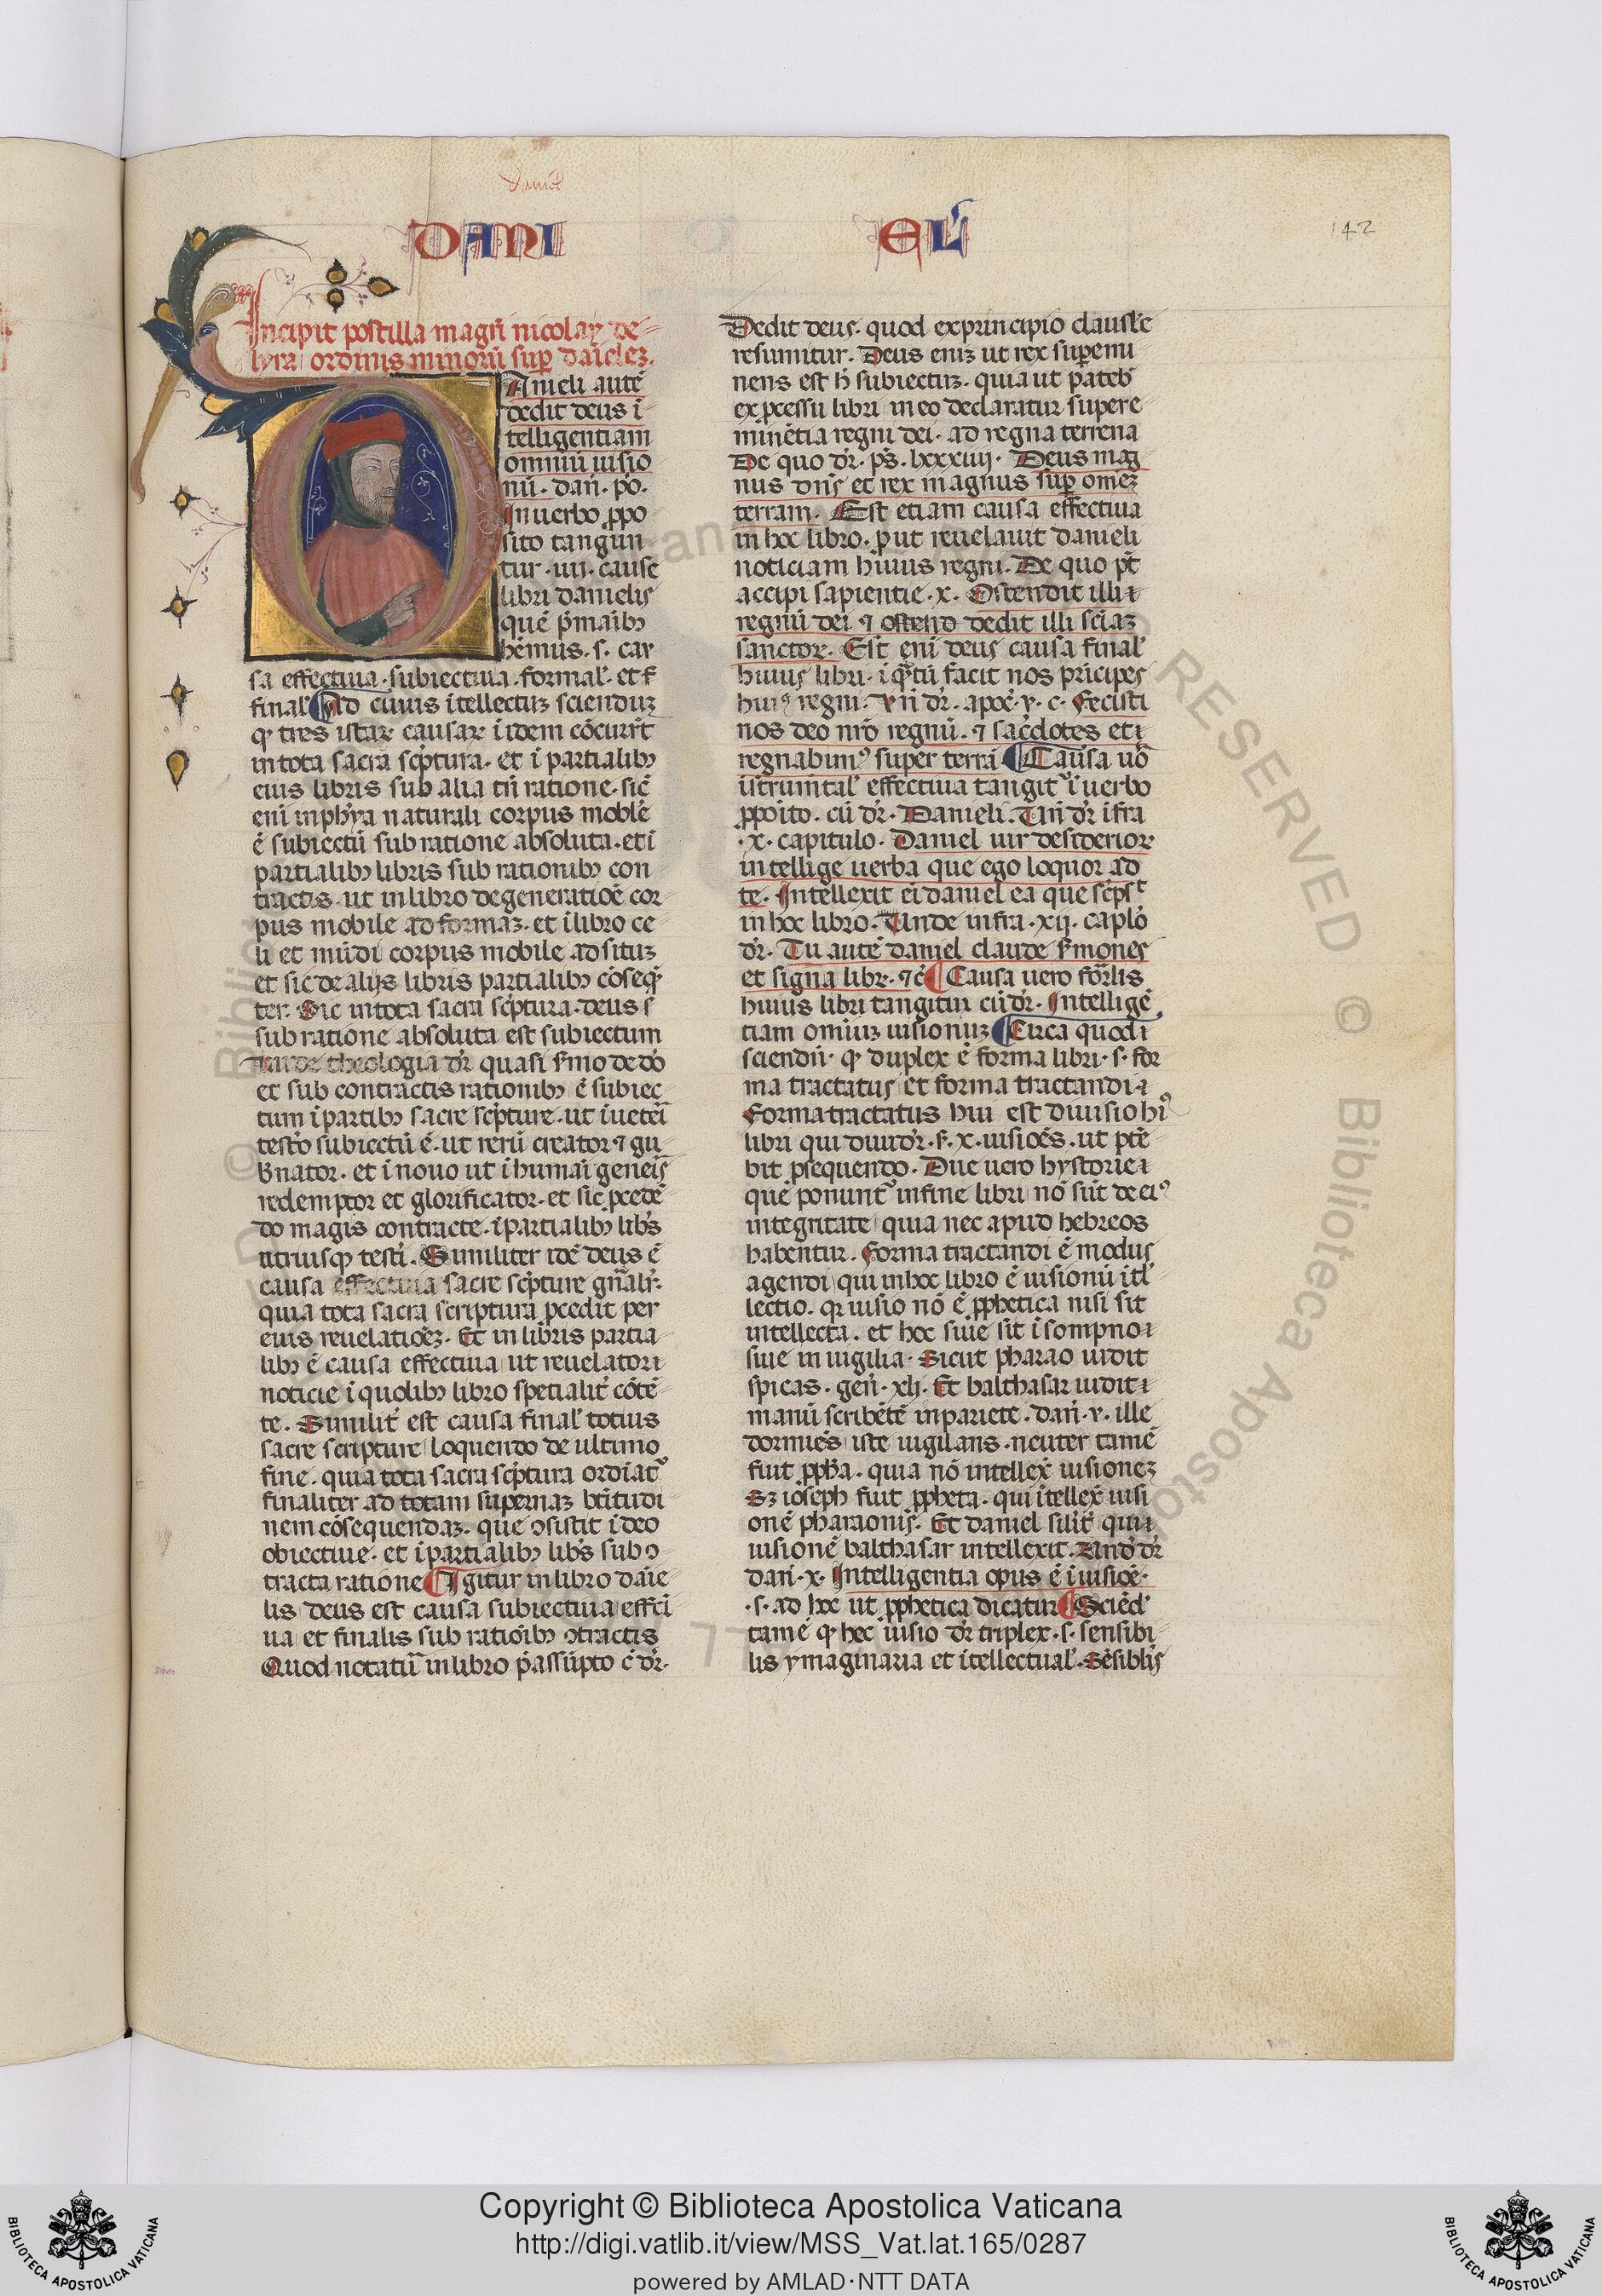 daniel
DANI EL̃
142
Incipit postilla magr̃i nicolay de
lyra ordinis minorũ sup̱ danielez.
Anieli autẽ
dedit deus ĩ
telligentiam
omniũ uisio
nũ· dañ· p̊·
In uerbo ꝓpo
sito tangun
tur ·iiii· cause
libri danielis
quẽ p̃ maĩbꝫ
hẽmus· s· cau
sa effectiua· subiectiua· formal̃· et
final̃ Ad cuius ĩtellectuꝫ sciendũꝫ
ꝙ tres istaꝝ causaꝝ ĩ idem cõcurr̃t
in tota sacra sc̃ptura· et ĩ partialibꝫ
eius libris sub alia tñ ratione· sic̃
enĩ in ph̃ya naturali corpus mobile
ẽ subiectũ sub ratione absoluta· et ĩ
partialibꝫ libris sub rationibꝫ con
tractis· ut in libro de generatiõe cor
pus mobile ad formaꝫ· et ĩ libro ce
li et mũdi corpus mobile ad situꝫ
et sic de alijs libris partialibꝫ cõseq̃
ter· Sic in tota sacra sc̃ptura· deus
sub ratione absoluta est subiectum
theologia dr̃ quasi s̃mo de dõ
et sub contractis rationibꝫ ẽ subiec
tum ĩ partibꝫ sacre sc̃pture· ut ĩ ueteĩ
test̃o subiectũ ẽ· ut rerũ creator ⁊ gu
b̃nator· et ĩ nouo ut ĩ humaĩ geneĩs
redemptor et glorificator· et sic ꝓcedẽ
do magis contracte· ĩ partialibꝫ lib̃s
utriusqꝫ test̃i· Similiter idẽ deus ẽ
causa effectiua sacre sc̃pture gñalr̃·
quia tota sacra scriptura ꝓcedit per
eius reuelatiõeꝫ· Et in libris partia
libꝫ ẽ causa effectiua ut reuelatori
noticie ĩ quolibꝫ libro spetialit̃ cõtẽ
te· Similit̃ est causa final̃ totius
sacre scripture loquendo de ultimo
fine· quia tota sacra sc̃ptura ordĩat᷑
finaliter ad totam supernaꝫ bt̃itudi
nem cõsequendaꝫ· que ↄsistit ĩ deo
obiectiue· et ĩ partialibꝫ lib̃s sub ↄ
tracta ratione Igitur in libro dãie
lis deus est causa subiectiua effc̃i
ua et finalis sub ratiõibꝫ ↄtractis
Quod notatũ in libro p̃assũpto c̃ dr̃·
Dedit deus· quod ex principio clausl̃e
resumitur· Deus eniꝫ ut rex supemi
nens est h̃ subiectuꝫ· quia ut pateb̃
ex ꝓcessu libri in eo declaratur supere
minẽtia regni dei· ad regna terrena
De quo dr̃· ps̃· lxxxiiij· Deus mag
nus dñs et rex magnus sup̱ omẽꝫ
terram· Est etiam causa effectiua
in hoc libro· ꝓut reuelauit danieli
noticiam huius regni· De quo pt̃
accipi sapientie ·x· Ostendit illi
regnũ dei ⁊ ostendo dedit illi sc̃iaꝫ
sanctoꝝ· Est enĩ deus causa final̃
huius libri· ĩ q̃tũ facit nos prĩcipes
huiꝰ regni· vñ dr̃· apoc̃· v· c· Fecisti
nos deo nr̃o regnũ· ⁊ sac̃dotes et
regnabimꝰ super terrã Causa uõ
ĩstrumtal̃ effectiua tangit᷑ ĩ uerbo
ꝓpoĩto· cũ dr̃· Danieli· Uñ dr̃ ĩfra
·x· capitulo· Daniel uir desideriorꝝ
intellige uerba que ego loquor ad
te· Intellexit eĩ daniel ea que sc̃psᷓt
in hoc libro· Unde infra ·xij· caplõ
dr̃· Tu autẽ daniel claude s̃mones
et signa libꝝ· ⁊c̃ Causa uero for̃lis
huius libri tangitur cũ dr̃· Intelligẽ
tiam omiuꝫ uisionuꝫ Circa quod
sciendũ· ꝙ duplex ẽ forma libri· s· for
ma tractatus et forma tractandi
Forma tractatus hui est diuisio hiꝰ
libri qui diuidr̃· ·x· uisiões· ut ptẽ
bit ꝓsequendo· Due uero hystorie
que ponunt᷑ in fine libri nõ sũt de eiꝰ
integritate quia nec apud hebreos
habentur· Forma tractandi ẽ modus
agendi qui in hoc libro ẽ uisionũ ĩtl̃
lectio· qꝛ uisio nõ ẽ ꝓphetica nisi sit
intellecta· et hoc siue sit ĩ sompno
siue in uigilia· Sicut pharao uidit
spicas· geñ· xlj· Et balthasar uidit
manũ scribẽtẽ in pariete· dañ· v· ille
dormiẽs iste uigilans· neuter tamẽ
fuit ꝓph̃a· quia nõ intellex̃ uisioneꝫ
Sꝫ ioseph fuit ꝓpheta· qui ĩtellex̃ uisi
onẽ pharaonis· Et daniel sil̃it̃ quia
uisionẽ balthasar intellexit· Und̃ dr̃
dañ· x· Intelligentia opus ẽ ĩ uisiõe·
·s· ad hoc ut ꝓphetica dicatur Sciẽd̃
tamẽ ꝙ hec uisio dr̃ triplex· s· sensibi
lis ymaginaria et ĩtellectual̃· Sẽsibl̃is
Copyright © Biblioteca Apostolica Vaticana
http://digi.vatlib.it/view/MSS_Vat.lat.165/0287
powered by AMLAD·NTT DATA
BIBLIOTECA APOSTOLICA VATICANA
BIBLIOTECA APOSTOLICA VATICANA